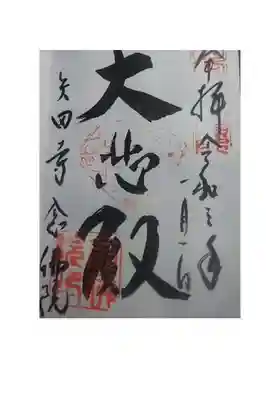 奉拝 令和三年
一月一日
大悲殿
矢田寺 念佛院